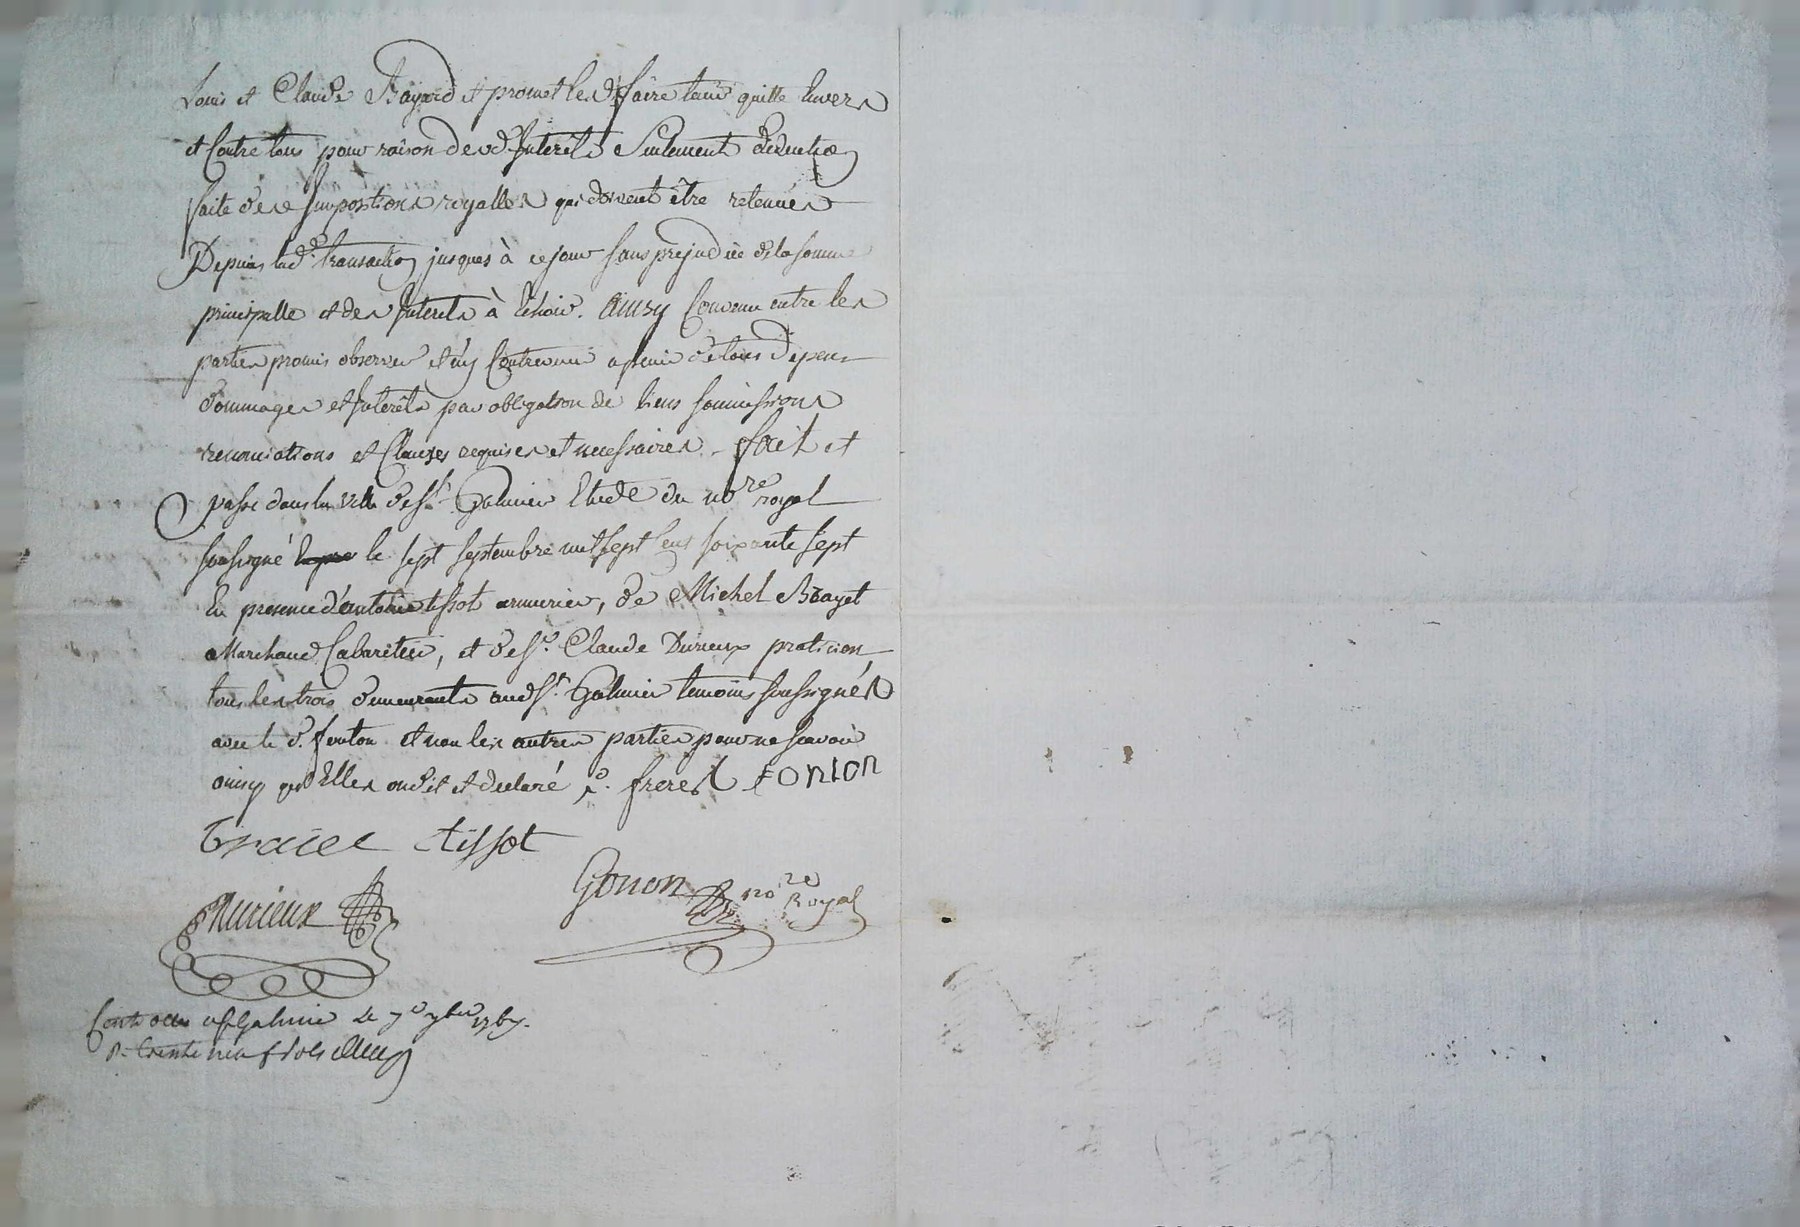 Louis et Claude Bayard et promet les d. faire tenir quitte Envers
et Contre tous pour raison desd. Interets Seulement deduction
faite des Impositions royalles qui doivent être retenues
Depuis lad. transaction jusques à ce jour sans prejudice de la somme
principalle et des Interets à Echoir. Ainsy Convenu entre les
parties promis observer et n'y Contrevenir a peine de tous depens
dommages et Interêts par obligation de biens soumissions
renonciations et Clauses requises et necessaires - fait et
passé dans la ville de St. Galmier Etude du nore royal
soussigné le sept septembre mil sept cens soixante sept
En presence d'antoine tissot armurier, de Michel Brayet
Marchand Cabaretier, et de Sr. Claude Durieux praticien
tous les trois demeurants aud St. Galmier temoins soussignés
avec le d. fonton et non les autres parties pour ne scavoir
ainsy qu'Elles ont dit et declaré frere FONTON
Braiet tissot
Durieux Gonon nore Royal
Controllé a St Galmier le 7e 7bre 1767.
R. trente neuf sols